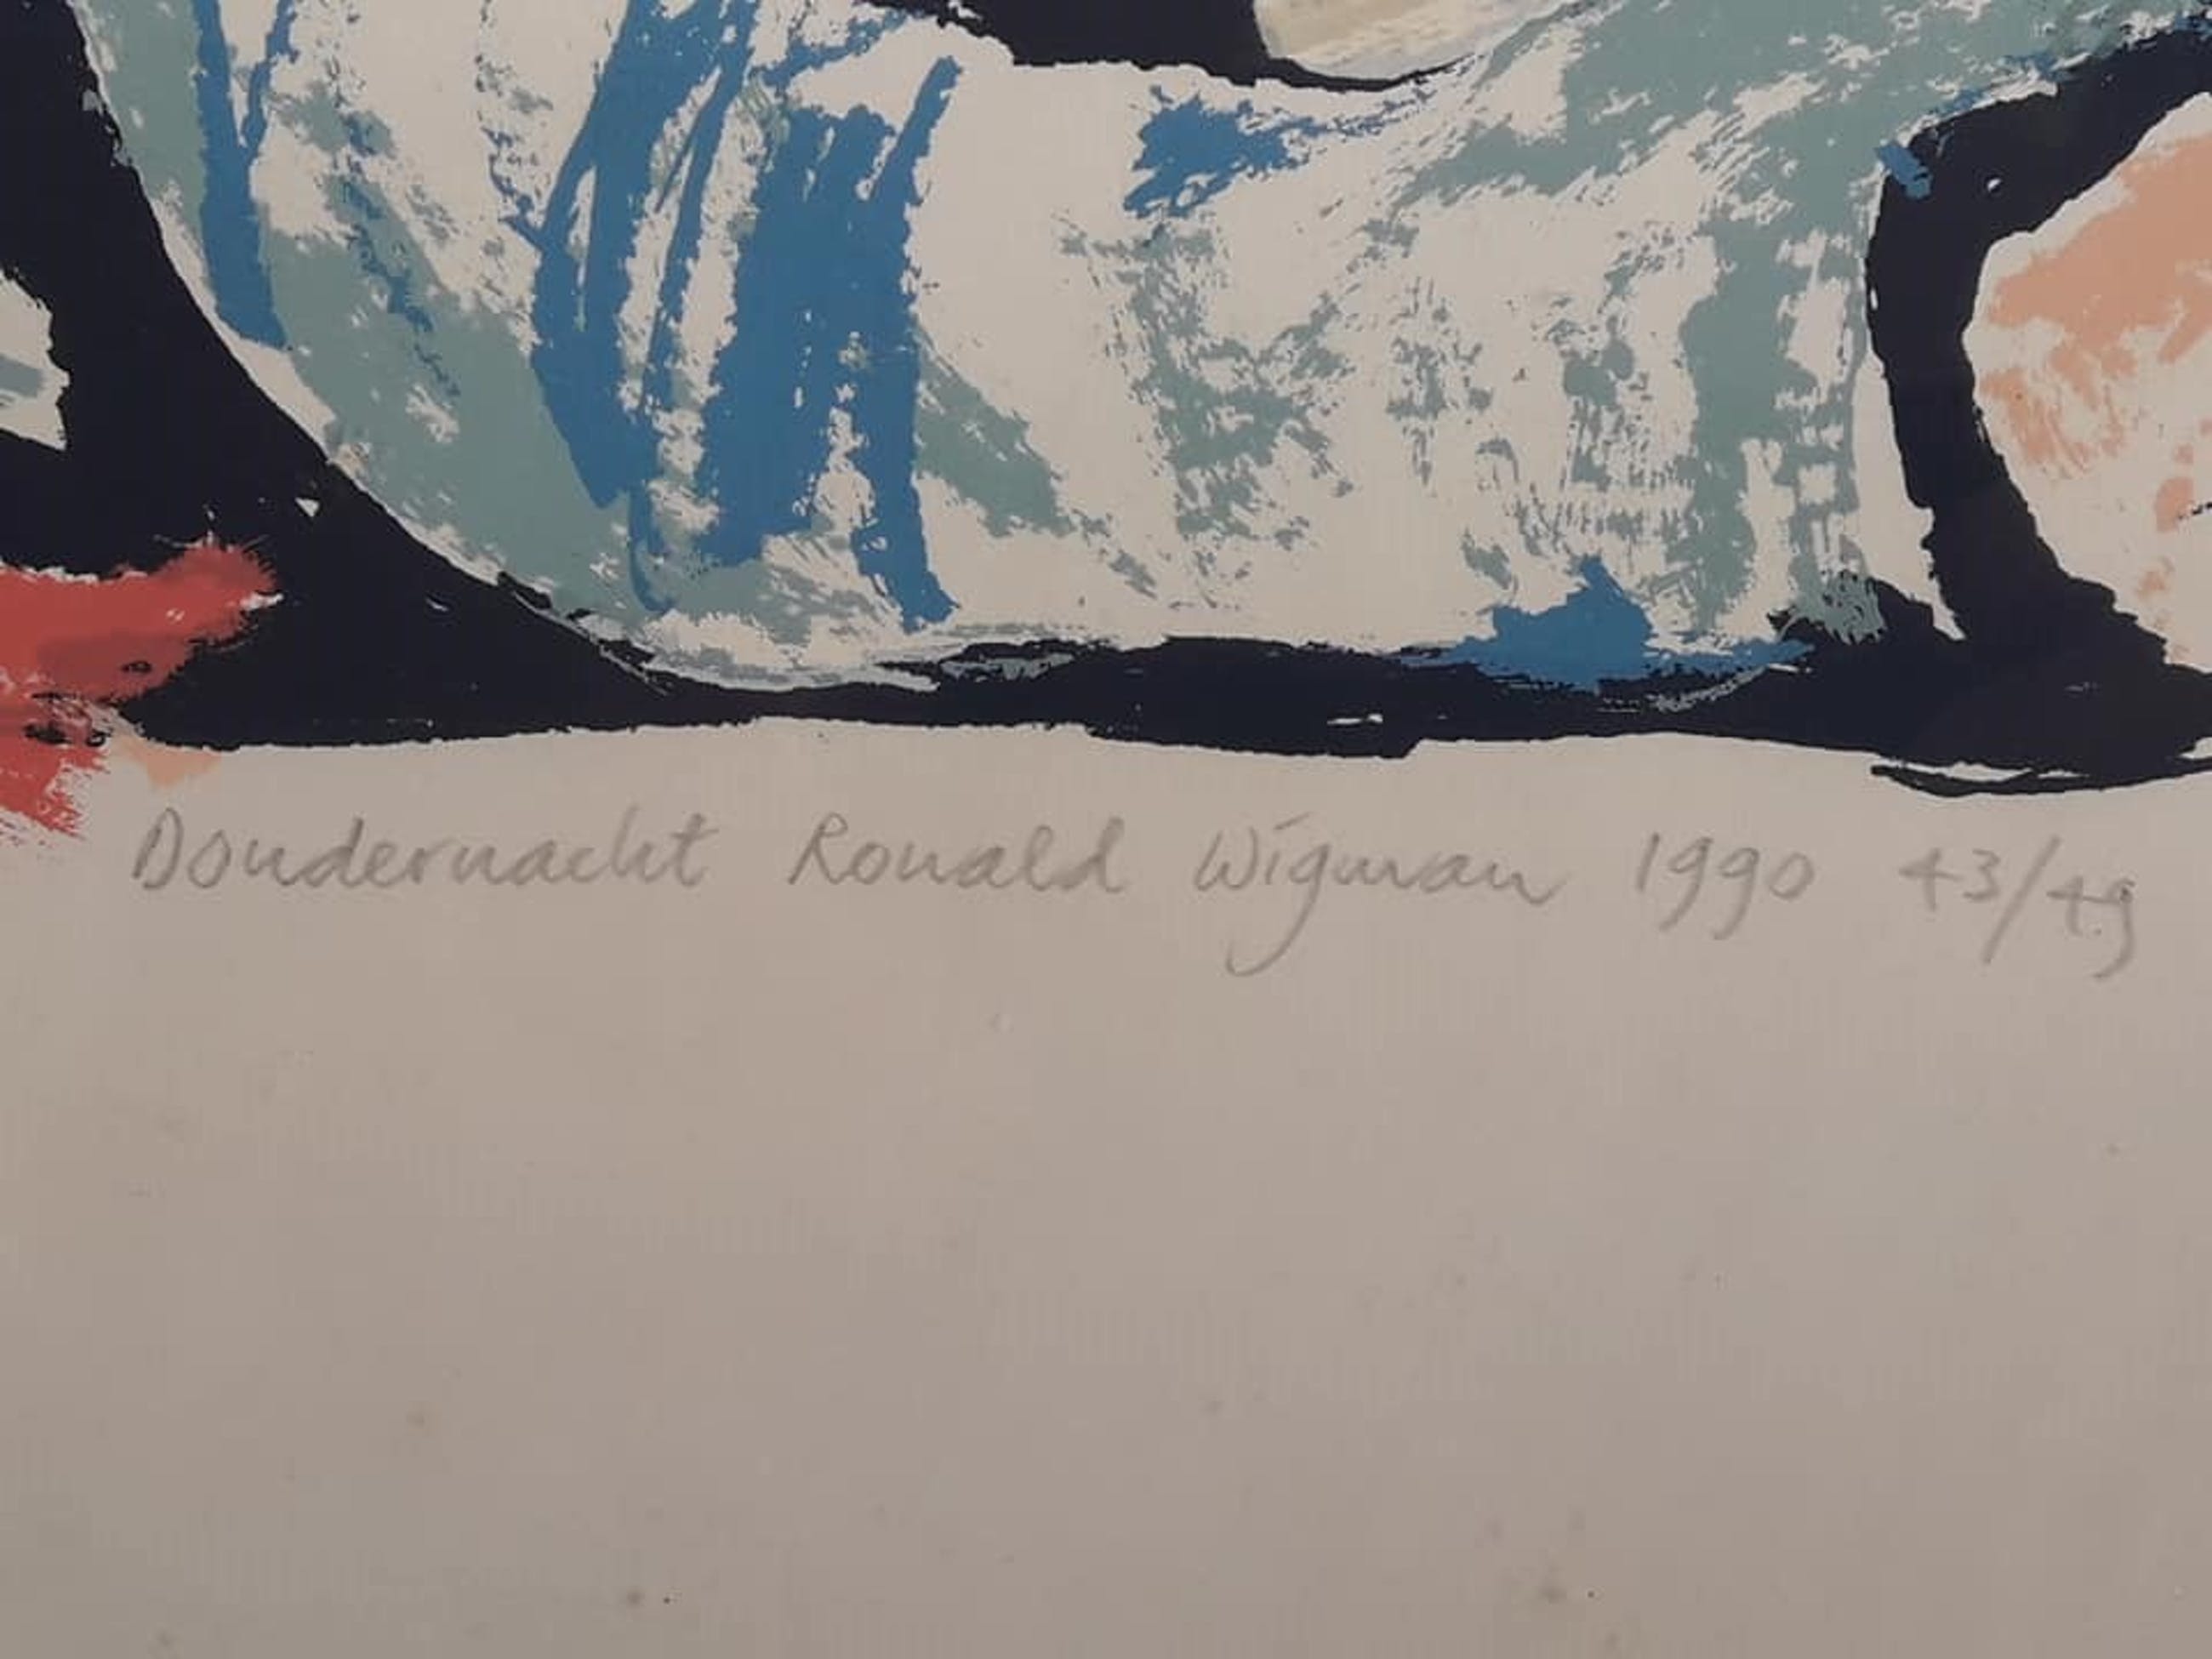 Dondernacht Ronald Wigman 1990 43/49